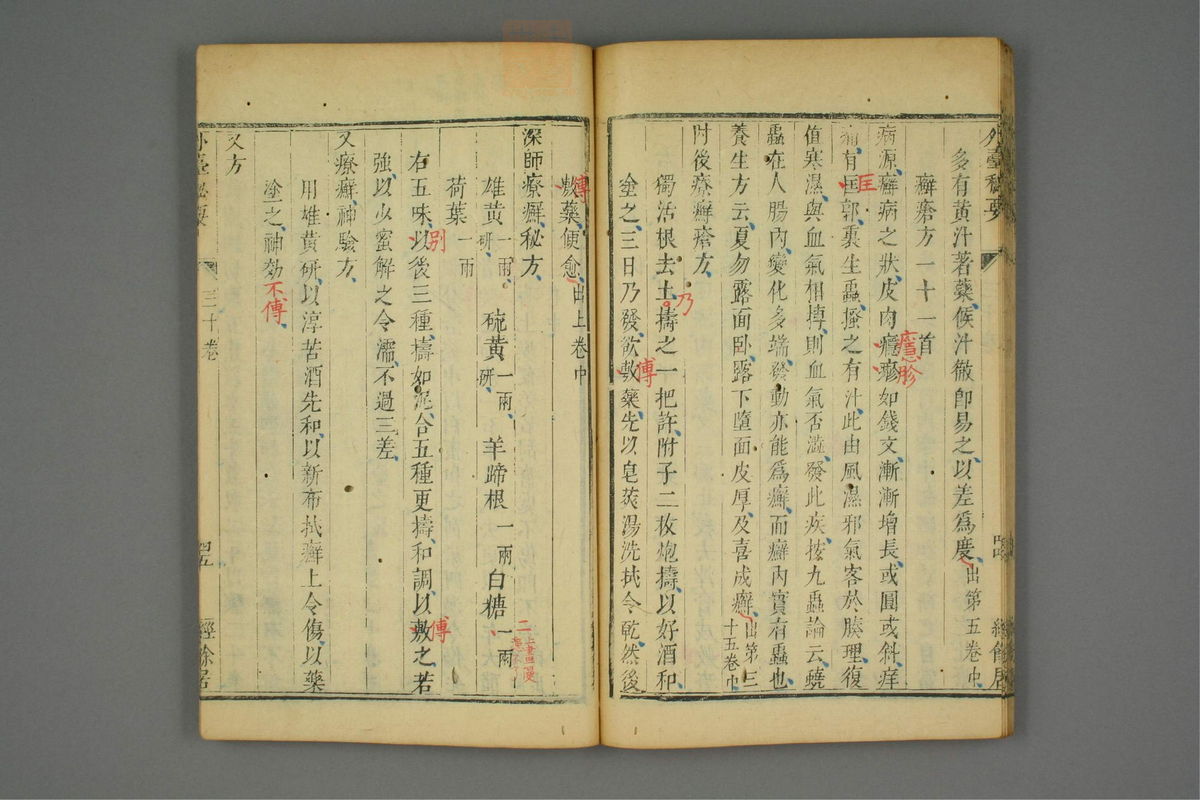 外臺秘要
多有黃汁著藥候汁徹卽易之以差爲度出第五卷中
癬瘡方一十一首
病源癬病之狀皮肉癮瘮如錢文漸漸增長或圓或斜痒
癮胗
痛有匡郭裏生蟲搔之有汁此由風濕邪氣客於腠理復
匡
值寒濕與血氣相搏則血氣否澁發此疾按九蟲論云蟯
蟲在人腸內變化多端發動亦能爲癬而癬內實有蟲也
養生方云夏勿露面卧露下墮面皮厚及喜成癬出第三十五卷中
肘後療癬瘡方
獨活根去土擣之一把許附子二枚炮擣以好酒和
乃
塗之三日乃發欲敷藥先以皂莢湯洗拭令乾然後
傅
敷藥便愈出上卷中
傅
深師療癬秘方
雄黃一兩研 硫黃一兩研 羊蹄根一兩 白糖一兩
二
荷葉一兩
右五味以後三種擣如泥合五種更擣和調以敷之若
別
傅
強以少蜜解之令濡不過三差
又療癬神驗方
用雄黃研以淳苦酒先和以新布拭癬上令傷以藥
塗之神効
不傅
又方
外臺秘要 三十卷 四五 經餘居